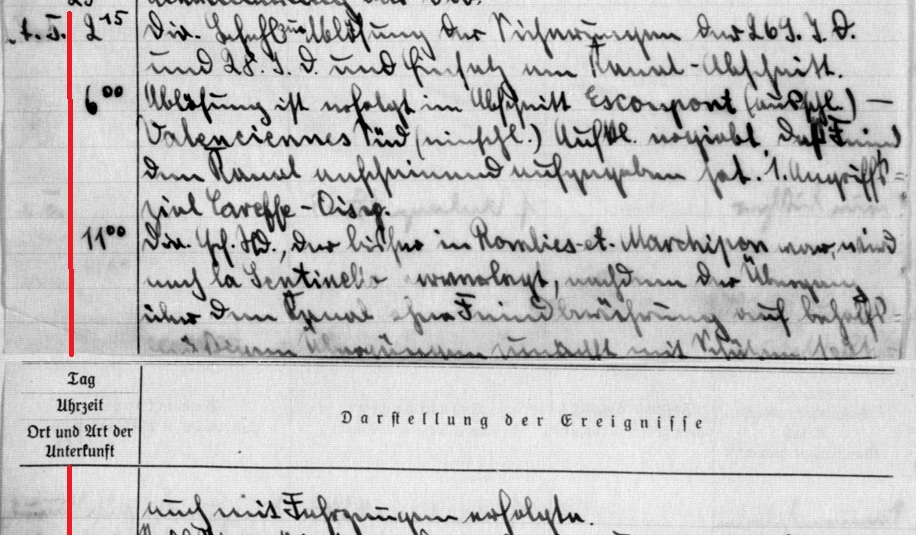 2¹⁵ Div. befiehlt Ablösung der Sicherungen der 269. I.D.
und 28. I.D. und Einsatz am Kanal-Abschnitt.
6⁰⁰ Ablösung ist erfolgt im Abschnitt Escoupont (ausschl.) —
Valenciennes Süd (einschl.) Aufkl. ergiebt, daß Feind
den Kanal anscheinend aufgegeben hat. 1. Angriffs=
ziel
11⁰⁰ Div. Gef. Std., der bisher in Rombies-et-Marchipon war, wird
nach la Sentinelle vorverlegt, nachdem der Übergang
über den Kanal ohne Feindberührung auf behelfs=
Übergängen zunächst mit
Tag
Uhrzeit
Ort und Art der
Unterkunft
Darstellung der Ereignisse
auch mit Fahrzeugen erfolgte.